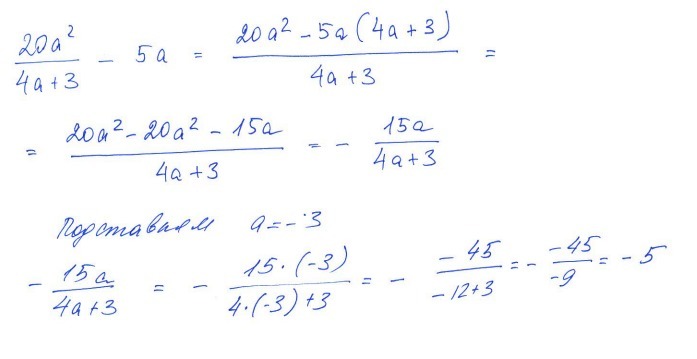 20a²/(4a+3) - 5a = (20a² - 5a(4a+3))/(4a+3) =
= (20a² - 20a² - 15a)/(4a+3) = - 15a/(4a+3)
Подставляем a = -3
- 15a/(4a+3) = - (15·(-3))/(4·(-3)+3) = - (-45)/(-12+3) = - (-45)/(-9) = -5